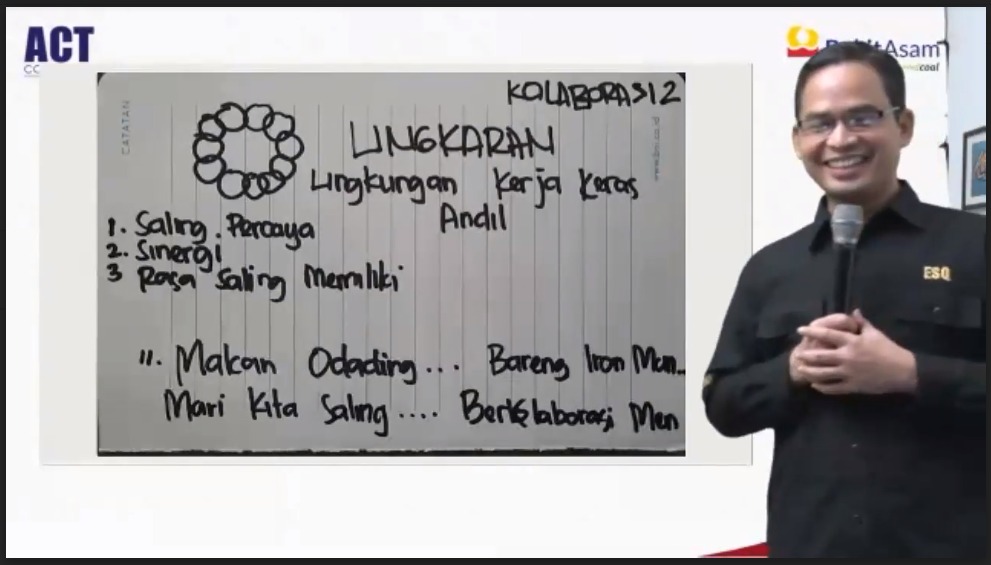 ACT
CO
BukitAsam
coal
KOLABORASI 2
CATATAN
LINGKARAN
Lingkungan Kerja Keras
Andil
1. Saling Percaya
2. Sinergi
3 Rasa Saling Memiliki
". Makan Odading... Bareng Iron Man..
Mari Kita Saling.... Berkolaborasi Men
www.bni.co.id
ESQ